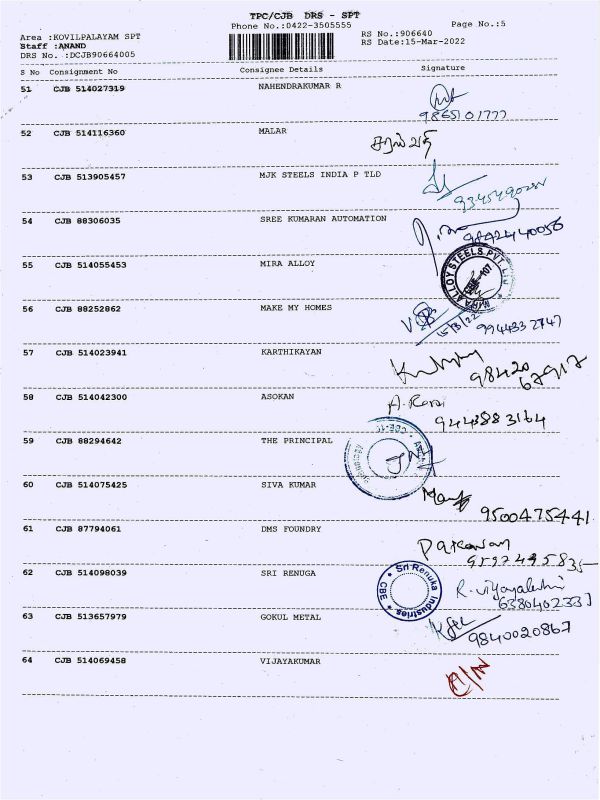 TPC/CJB DRS - SPT
Phone No.:0422-3505555
Page No.:5
Area :KOVILPALAYAM SPT
RS No.:906640
Staff :ANAND
RS Date:15-Mar-2022
DRS No. :DCJB90664005
S No Consignment No Consignee Details Signature
51 CJB 514027319 NAHENDRAKUMAR R
9865101777
52 CJB 514116360 MALAR
சரஸ்வதி
53 CJB 513905457 MJK STEELS INDIA P TLD
54 CJB 88306035 SREE KUMARAN AUTOMATION
9892440056
55 CJB 514055453 MIRA ALLOY
MIRA ALLOY STEELS PVT. LTD
56 CJB 88252862 MAKE MY HOMES
15/3/22 9944332747
57 CJB 514023941 KARTHIKAYAN
98420
67917
58 CJB 514042300 ASOKAN
9443883164
59 CJB 88294642 THE PRINCIPAL
60 CJB 514075425 SIVA KUMAR
9500475441
61 CJB 87794061 DMS FOUNDRY
62 CJB 514098039 SRI RENUGA
Sri Renuka Industries CBE
R. Vijayalakshmi
63 CJB 513657979 GOKUL METAL
9840020867
64 CJB 514069458 VIJAYAKUMAR